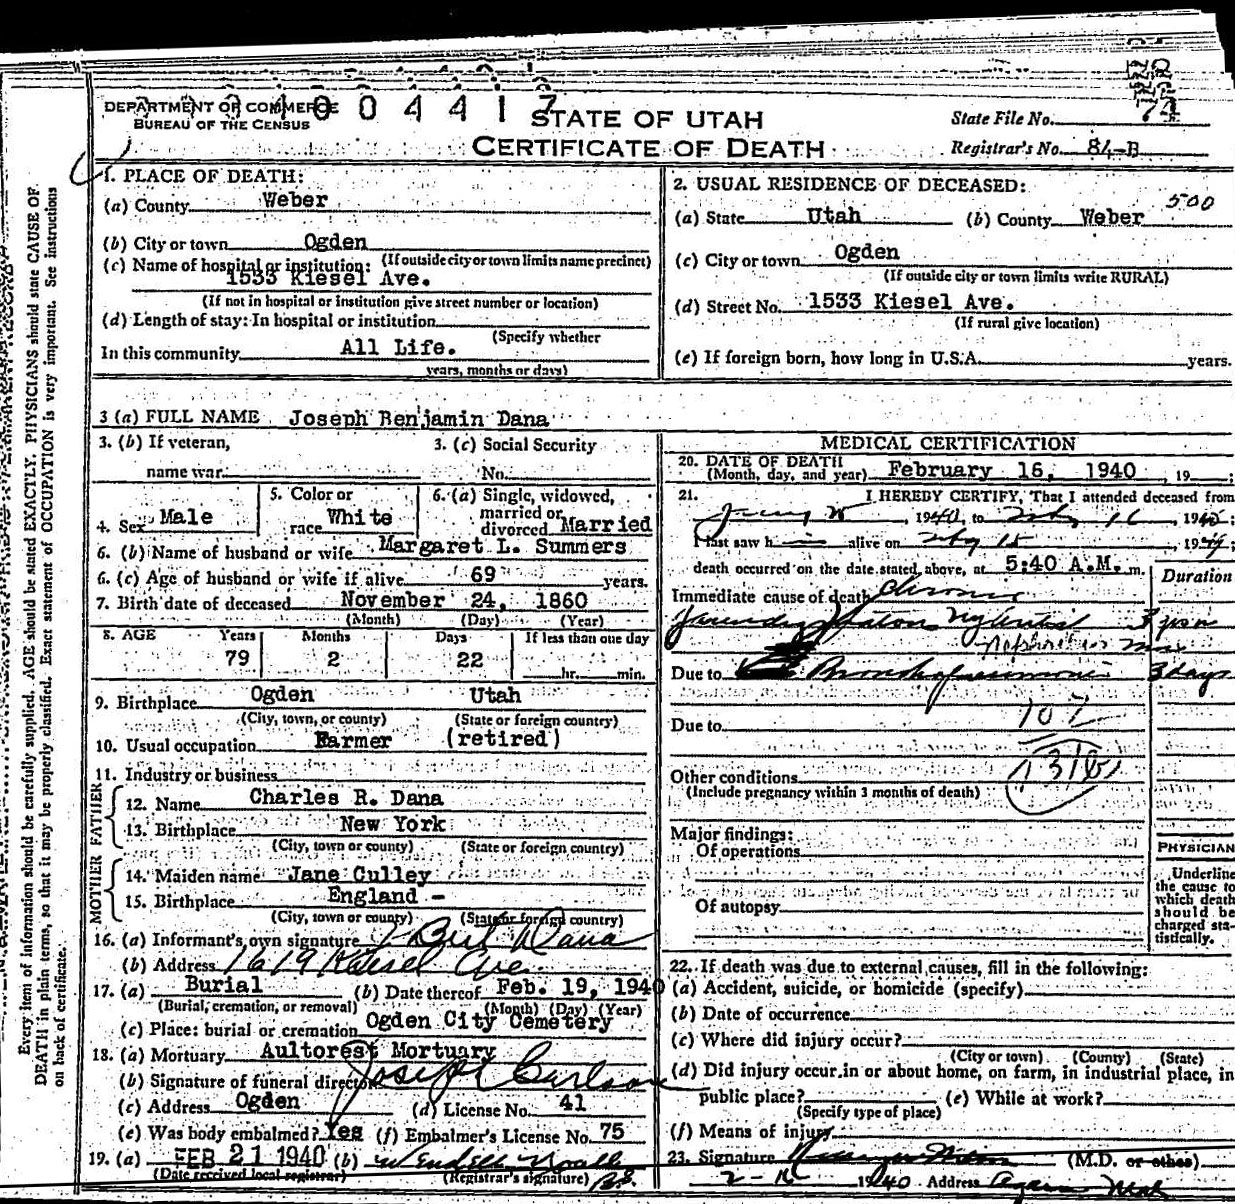 DEPARTMENT OF COMMERCE
BUREAU OF THE CENSUS
0 0 4 4 1 7
STATE OF UTAH
CERTIFICATE OF DEATH
State File No.
Registrar's No. 84-B
Every item of information should be carefully supplied. AGE should be stated EXACTLY. PHYSICIANS should state CAUSE OF
DEATH in plain terms, so that it may be properly classified. Exact statement of OCCUPATION is very important. See instructions
on back of certificate.
1. PLACE OF DEATH:
(a) County Weber
(b) City or town Ogden
(If outside city or town limits name precinct)
(c) Name of hospital or institution:
1533 Kiesel Ave.
(If not in hospital or institution give street number or location)
(d) Length of stay: In hospital or institution
(Specify whether
In this community All Life.
years, months or days)
2. USUAL RESIDENCE OF DECEASED:
500
(a) State Utah (b) County Weber
(c) City or town Ogden
(If outside city or town limits write RURAL)
(d) Street No. 1533 Kiesel Ave.
(If rural give location)
(e) If foreign born, how long in U.S.A. years.
3 (a) FULL NAME Joseph Benjamin Dana
3. (b) If veteran,
name war
3. (c) Social Security
No.
4. Sex Male
5. Color or
race White
6. (a) Single, widowed,
married or
divorced Married
6. (b) Name of husband or wife Margaret L. Summers
6. (c) Age of husband or wife if alive 69 years.
7. Birth date of deceased November 24, 1860
(Month) (Day) (Year)
8. AGE Years Months Days If less than one day
79 2 22 hr. min.
9. Birthplace Ogden Utah
(City, town, or county) (State or foreign country)
10. Usual occupation Farmer (retired)
11. Industry or business
FATHER
12. Name Charles R. Dana
13. Birthplace New York
(City, town or county) (State or foreign country)
MOTHER
14. Maiden name Jane Culley
15. Birthplace England -
(City, town or county) (State or foreign country)
16. (a) Informant's own signature Bert Dana
(b) Address 1619 Kiesel Ave
17. (a) Burial (b) Date thereof Feb. 19, 1940
(Burial, cremation, or removal) (Month) (Day) (Year)
(c) Place: burial or cremation Ogden City Cemetery
18. (a) Mortuary Aultorest Mortuary
(b) Signature of funeral director Joseph Carlson
(c) Address Ogden (d) License No. 41
(e) Was body embalmed? Yes (f) Embalmer's License No. 75
19. (a) FEB 21 1940 (b)
(Date received local registrar) (Registrar's signature)
MEDICAL CERTIFICATION
20. DATE OF DEATH
(Month, day, and year) February 16, 1940, 19 ;
21. I HEREBY CERTIFY, That I attended deceased from
, 1940, to Feby 16, 1940;
I last saw him alive on Feby 15, 1940;
death occurred on the date stated above, at 5:40 A.M. m.
Duration
Immediate cause of death Chronic
Due to Bronchopneumonia 3 days
107
Due to
131b
Other conditions
(Include pregnancy within 3 months of death)
Major findings:
Of operations
Of autopsy
PHYSICIAN
Underline
the cause to
which death
should be
charged sta-
tistically.
22. If death was due to external causes, fill in the following:
(a) Accident, suicide, or homicide (specify)
(b) Date of occurrence
(c) Where did injury occur?
(City or town) (County) (State)
(d) Did injury occur in or about home, on farm, in industrial place, in
public place? (e) While at work?
(Specify type of place)
(f) Means of injury
23. Signature (M.D. or other)
2-16 1940 Address Ogden Utah